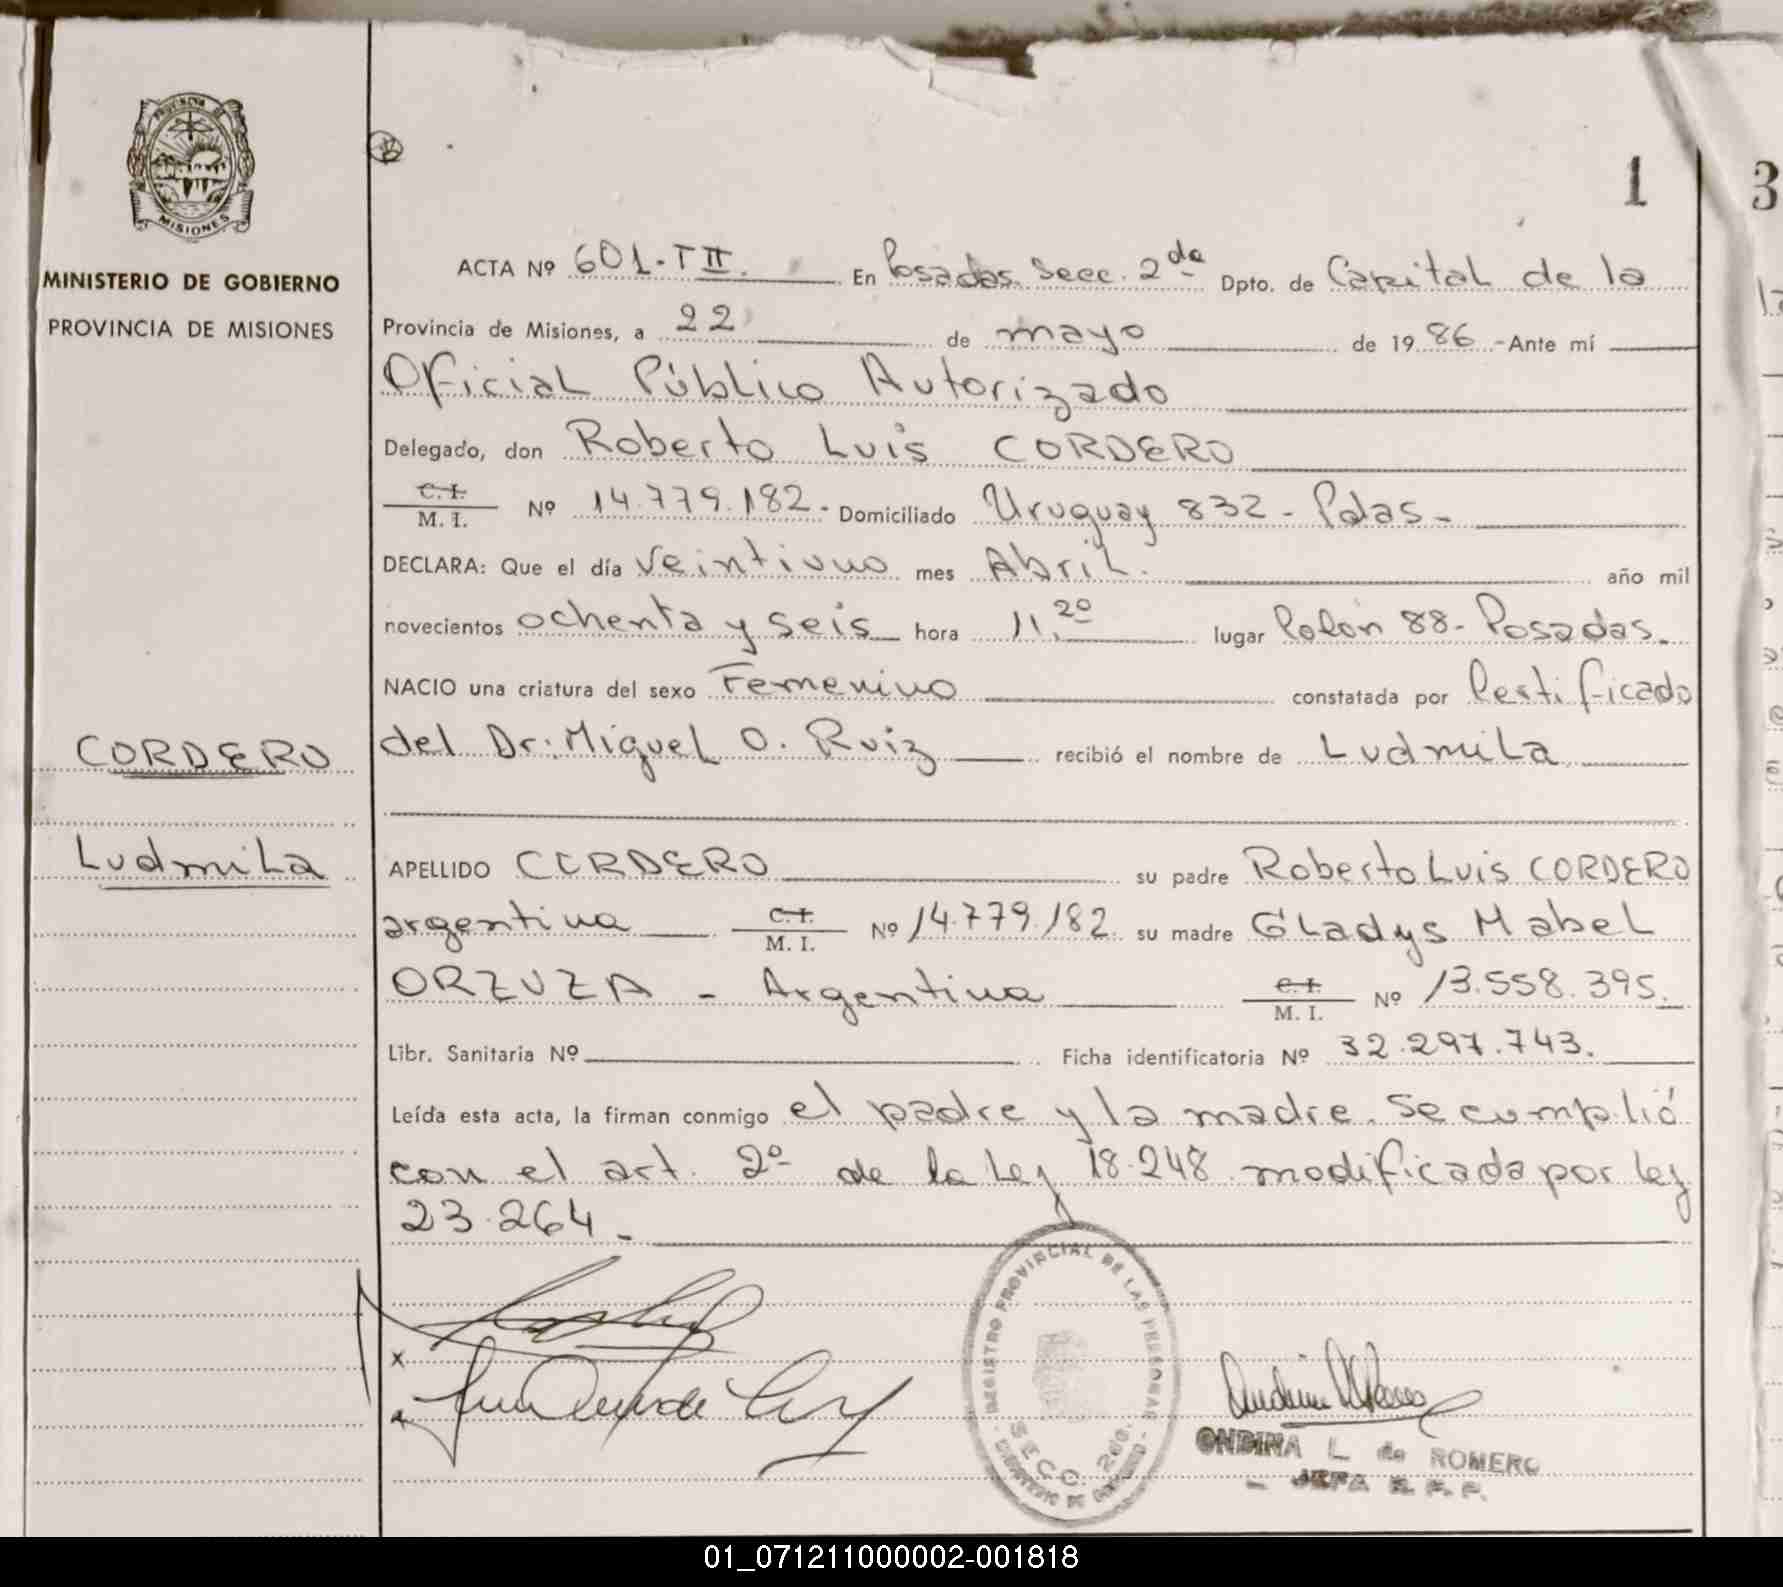 PROVINCIA DE
MISIONES
MINISTERIO DE GOBIERNO
PROVINCIA DE MISIONES
1
3
ACTA Nº 601-T II. En Posadas Secc. 2da Dpto. de Capital de la
Provincia de Misiones, a 22 de mayo de 1986.-Ante mí
Oficial Público Autorizado
Delegado, don Roberto Luis CORDERO
C.I. / M. I. Nº 14.779.182.- Domiciliado Uruguay 832 - Pdas -
DECLARA: Que el día veintiuno mes Abril. año mil
novecientos ochenta y seis hora 11,20 lugar Colón 88- Posadas.
NACIO una criatura del sexo Femenino constatada por Certificado
CORDERO
del Dr: Miguel O. Ruiz recibió el nombre de Ludmila
Ludmila
APELLIDO CORDERO su padre Roberto Luis CORDERO
argentina C.I. / M. I. Nº 14.779.182 su madre Gladys Mabel
ORZUZA - Argentina C.I. / M. I. Nº 13.558.395.
Libr. Sanitaria Nº Ficha identificatoria Nº 32.297.743.
Leída esta acta, la firman conmigo el padre y la madre. Se cumplió
con el art. 2º de la Ley 18.248 modificada por ley
23.264.-
REGISTRO PROVINCIAL DE LAS PERSONAS
SECC. 2da.
MINISTERIO DE GOBIERNO
ONDINA L de ROMERO
- JEFA R. P. P.
01_071211000002-001818